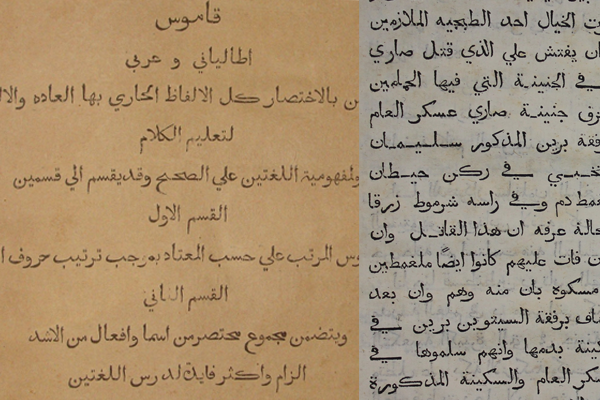 قاموس
اطالياني و عربي
بالاختصار كل الالفاظ الجاري بها العاده
لتعليم الكلام
ولمفهومية اللغتين علي الصحيح وقد يقسم الي قسمين
القسم الاول
المرتب علي حسب المعتاد بموجب ترتيب حروف
القسم الثاني
ويتضمن مجموع مختصر من اسما وافعال من الاشد
الزام واكثر فايدة لدرس اللغتين
الخيال احد الطبجيه الملازمين
يفتش علي الذي قتل صاري
في الجنينة التي فيها الحمامين
جنينة صاري عسكر العام
برين المذكور سليمان
مخبي في ركن حيطان
دم وفي راسه شرموط زرقا
عرفه ان هذا القاتل وان
فات عليهم كانوا ايضًا ملغمطين
مسكوه بان منه وهم وان بعد
برفقة السيتوين برين في
بدمها وانهم سلموها في
العام والسكينة المذكورة